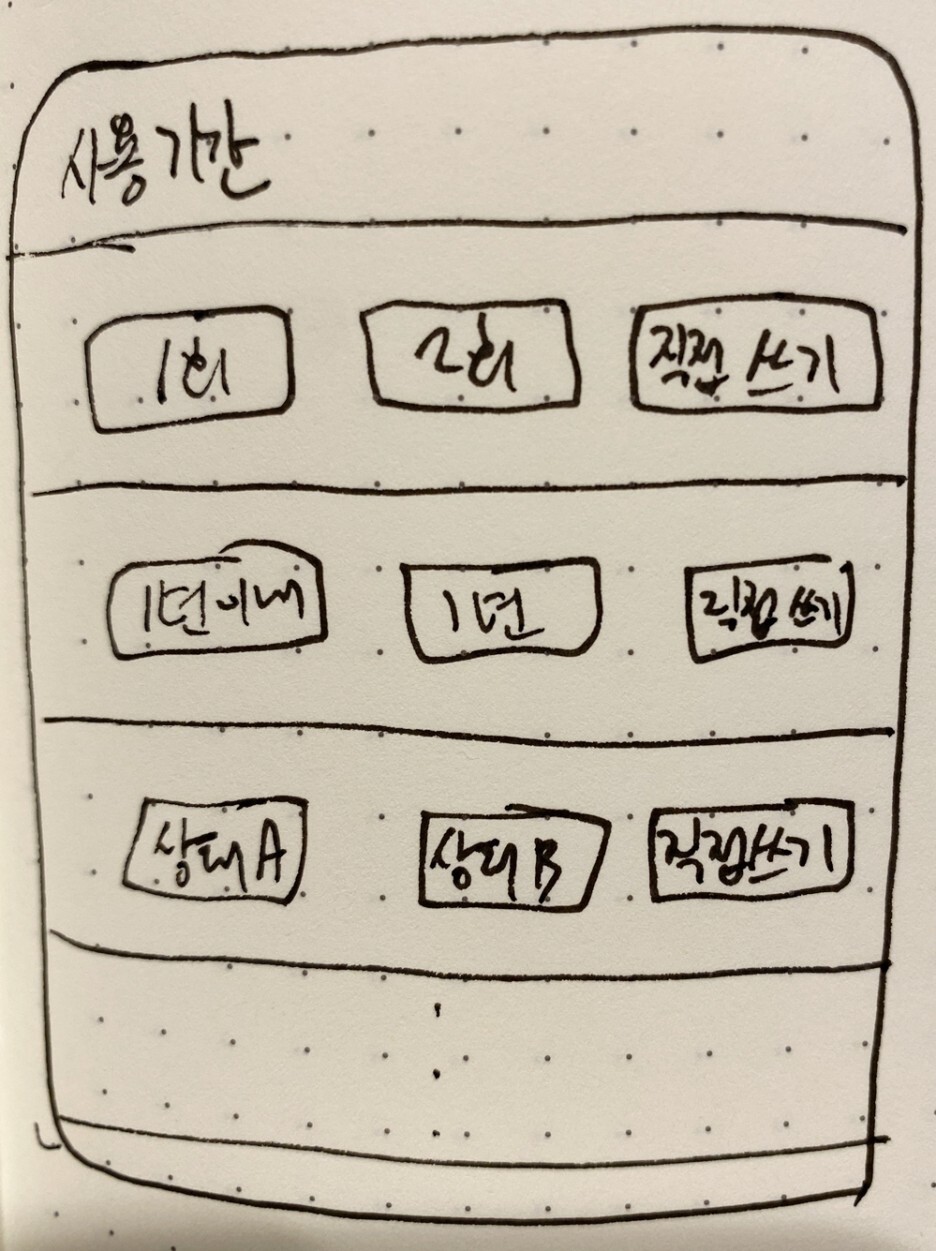 사용기간
1회 2회 직접 쓰기
1년이내 1년 직접 쓰기
상태A 상태B 직접쓰기